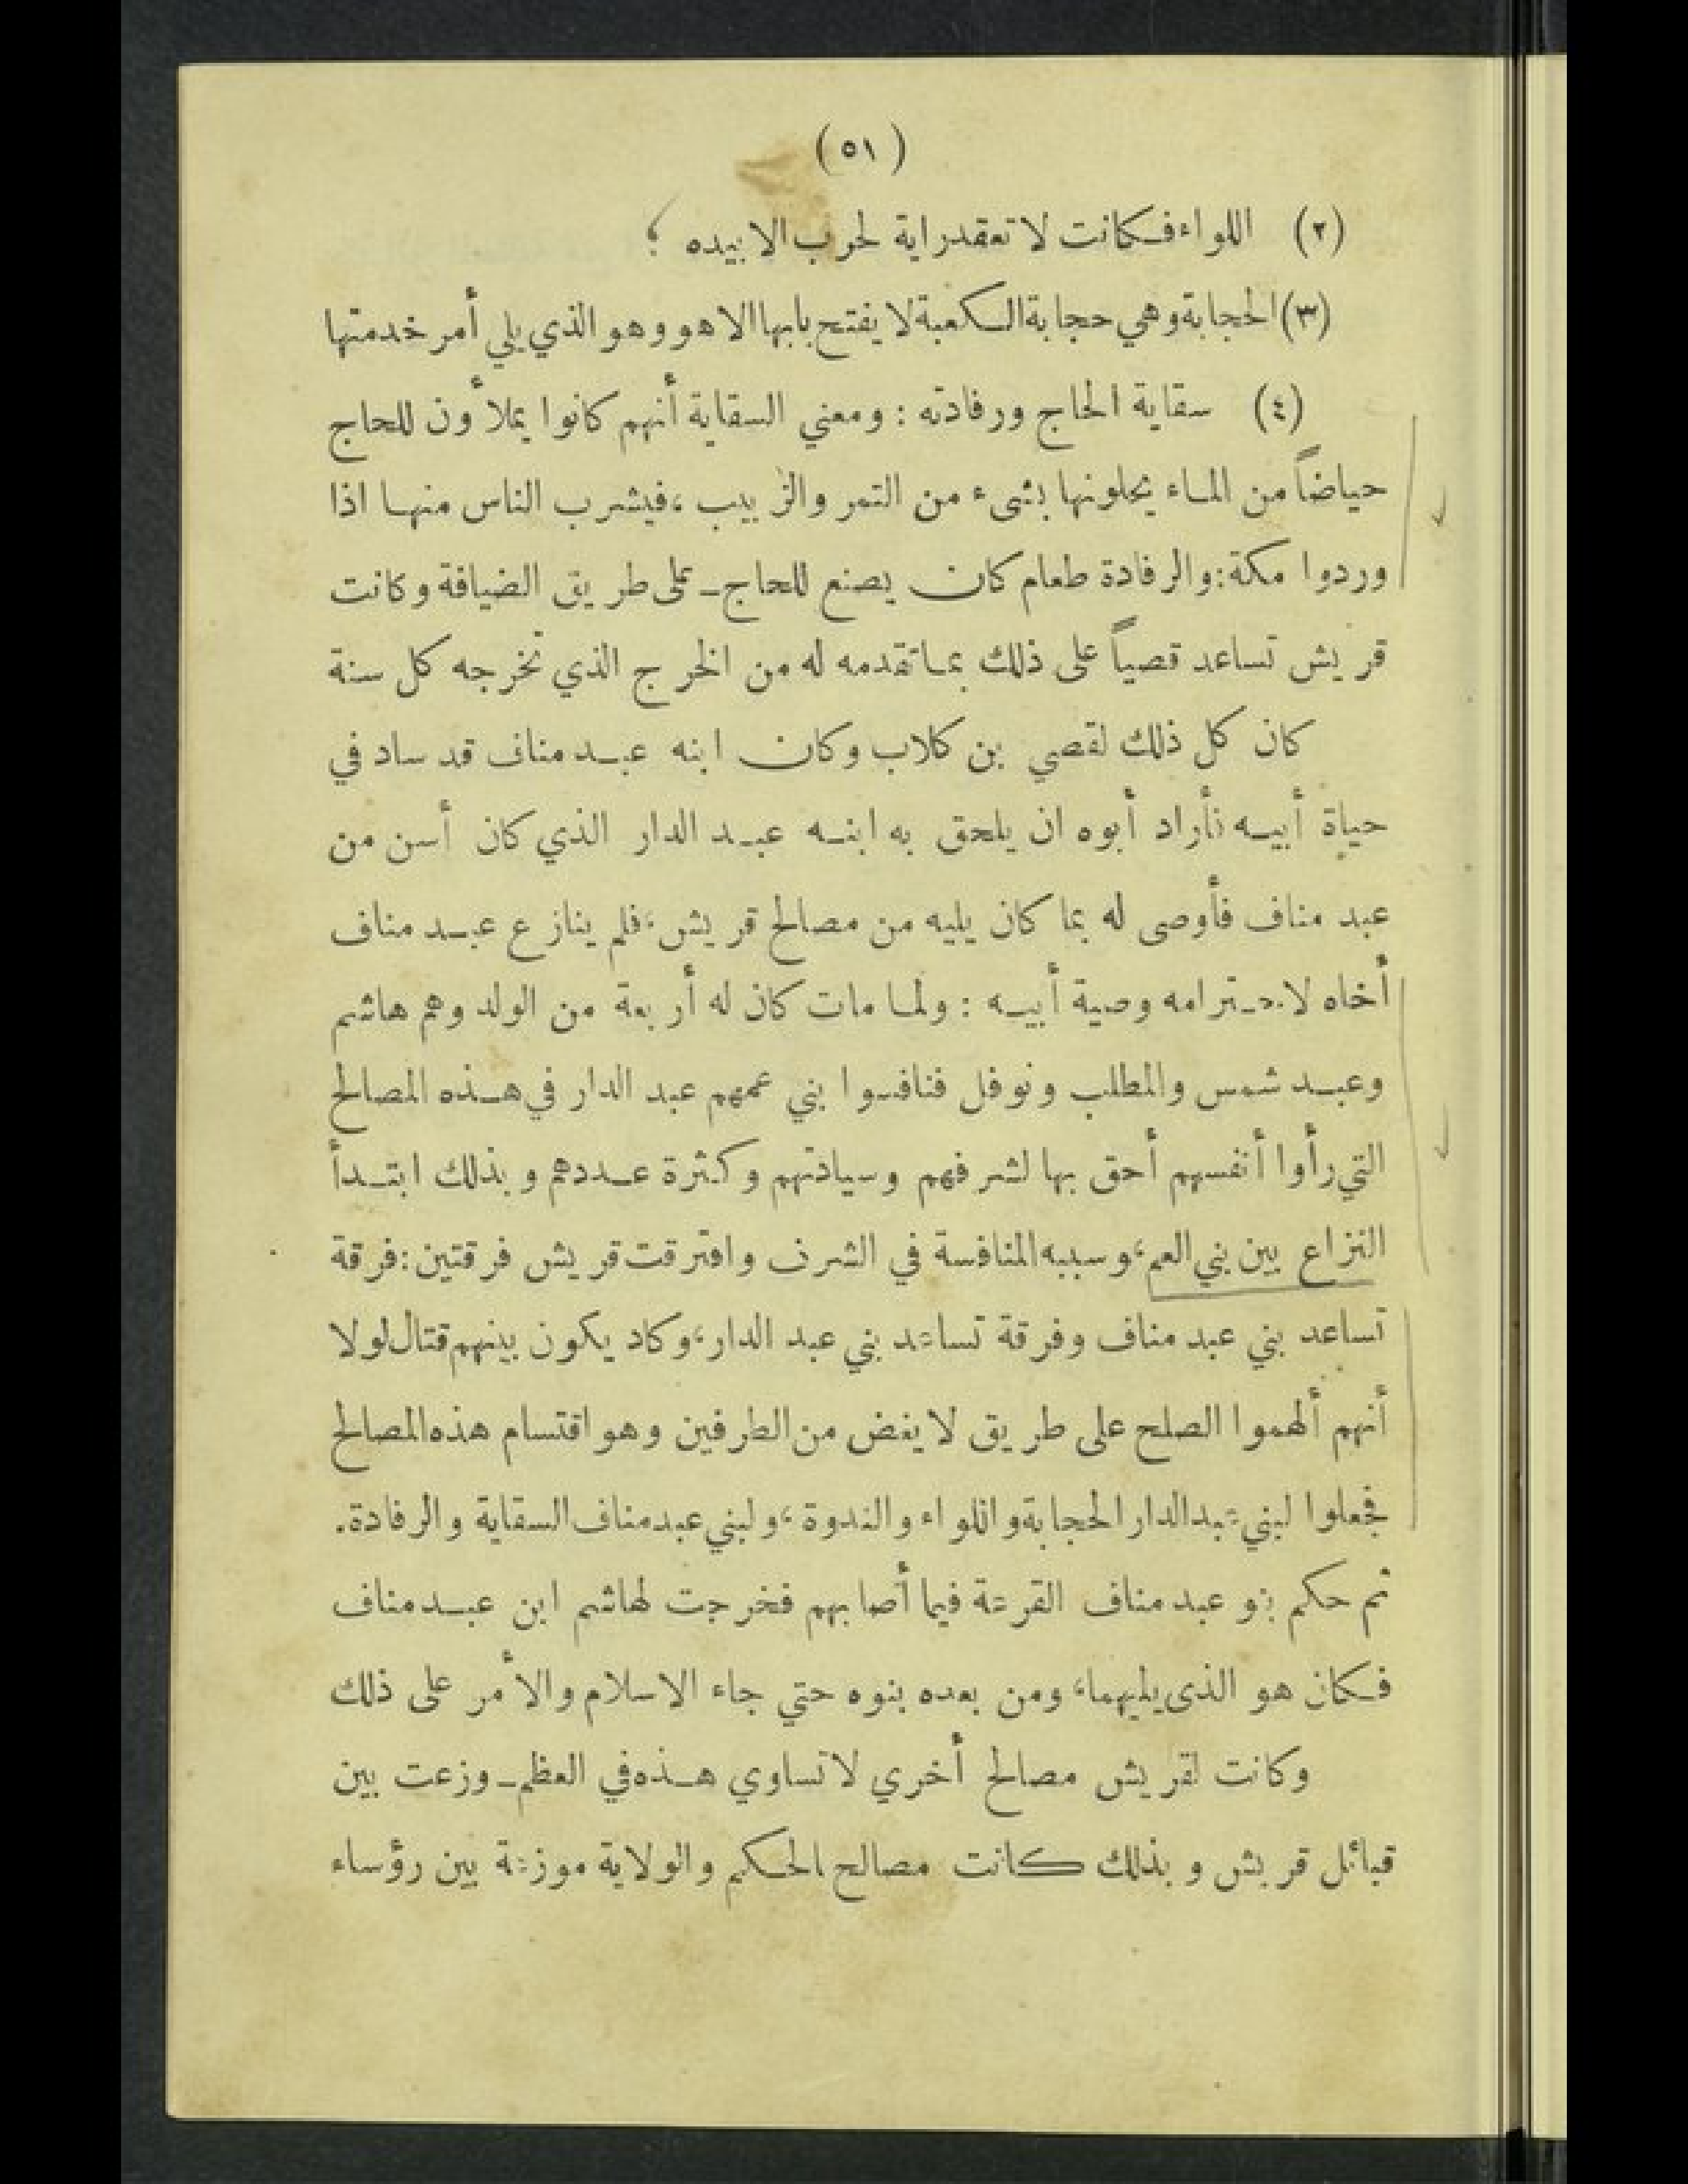 (٥١)
(٢) اللواء فكانت لا تعقد راية لحرب الا بيده ؛
(٣) الحجابة وهي حجابة الكعبة لا يفتح بابها الا هو وهو الذي يلي أمر خدمتها
(٤) سقاية الحاج ورفادته : ومعني السقاية أنهم كانوا يملأون للحاج
حياضاً من الماء يحلونها بشىء من التمر والزبيب ، فيشرب الناس منها اذا
وردوا مكة : والرفادة طعام كان يصنع للحاج ـ على طريق الضيافة وكانت
قريش تساعد قصياً على ذلك بما تقدمه له من الخرج الذي تخرجه كل سنة
كان كل ذلك لقصي بن كلاب وكان ابنه عبد مناف قد ساد في
حياة أبيه فأراد أبوه ان يلحق به ابنه عبد الدار الذي كان أسن من
عبد مناف فأوصى له بما كان يليه من مصالح قريش ، فلم ينازع عبد مناف
أخاه لاحترامه وصية أبيه : ولما مات كان له أربعة من الولد وهم هاشم
وعبد شمس والمطلب ونوفل فنافسوا بني عمهم عبد الدار في هذه المصالح
التي رأوا أنفسهم أحق بها لشرفهم وسيادتهم وكثرة عددهم وبذلك ابتدأ
النزاع بين بني العم ، وسببه المنافسة في الشرف وافترقت قريش فرقتين : فرقة
تساعد بني عبد مناف وفرقة تساعد بني عبد الدار ، وكاد يكون بينهم قتال لولا
أنهم ألهموا الصلح على طريق لا يغض من الطرفين وهو اقتسام هذه المصالح
فجعلوا لبني عبد الدار الحجابة واللواء والندوة ، ولبني عبد مناف السقاية والرفادة .
ثم حكم بنو عبد مناف القرعة فيما أصابهم فخرجت لهاشم ابن عبد مناف
فكان هو الذى يليهما ، ومن بعده بنوه حتي جاء الاسلام والأمر على ذلك
وكانت لقريش مصالح أخري لا تساوي هذه في العظم ـ وزعت بين
قبائل قريش وبذلك كانت مصالح الحكم والولاية موزعة بين رؤساء